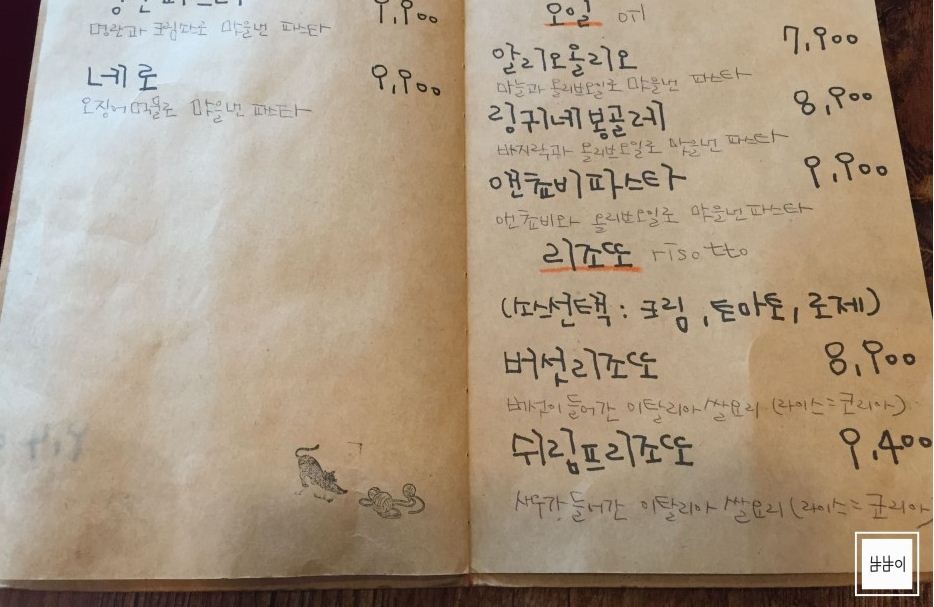 9,900
명란과 크림소스로 맛을낸 파스타
네로 9,900
오징어먹물로 맛을낸 파스타
오일 oil
알리오올리오 7,900
마늘과 올리브오일로 맛을낸 파스타
링귀네봉골레 8,900
바지락과 올리브오일로 맛을낸 파스타
앤쵸비파스타 9,900
앤쵸비와 올리브오일로 맛을낸파스타
리조또 risotto
(소스선택: 크림, 토마토, 로제)
버섯리조또 8,900
버섯이들어간 이탈리아쌀요리 (라이스=코리아)
쉬림프리조또 9,400
새우가들어간 이탈리아쌀요리(라이스=코리아
냠냠이